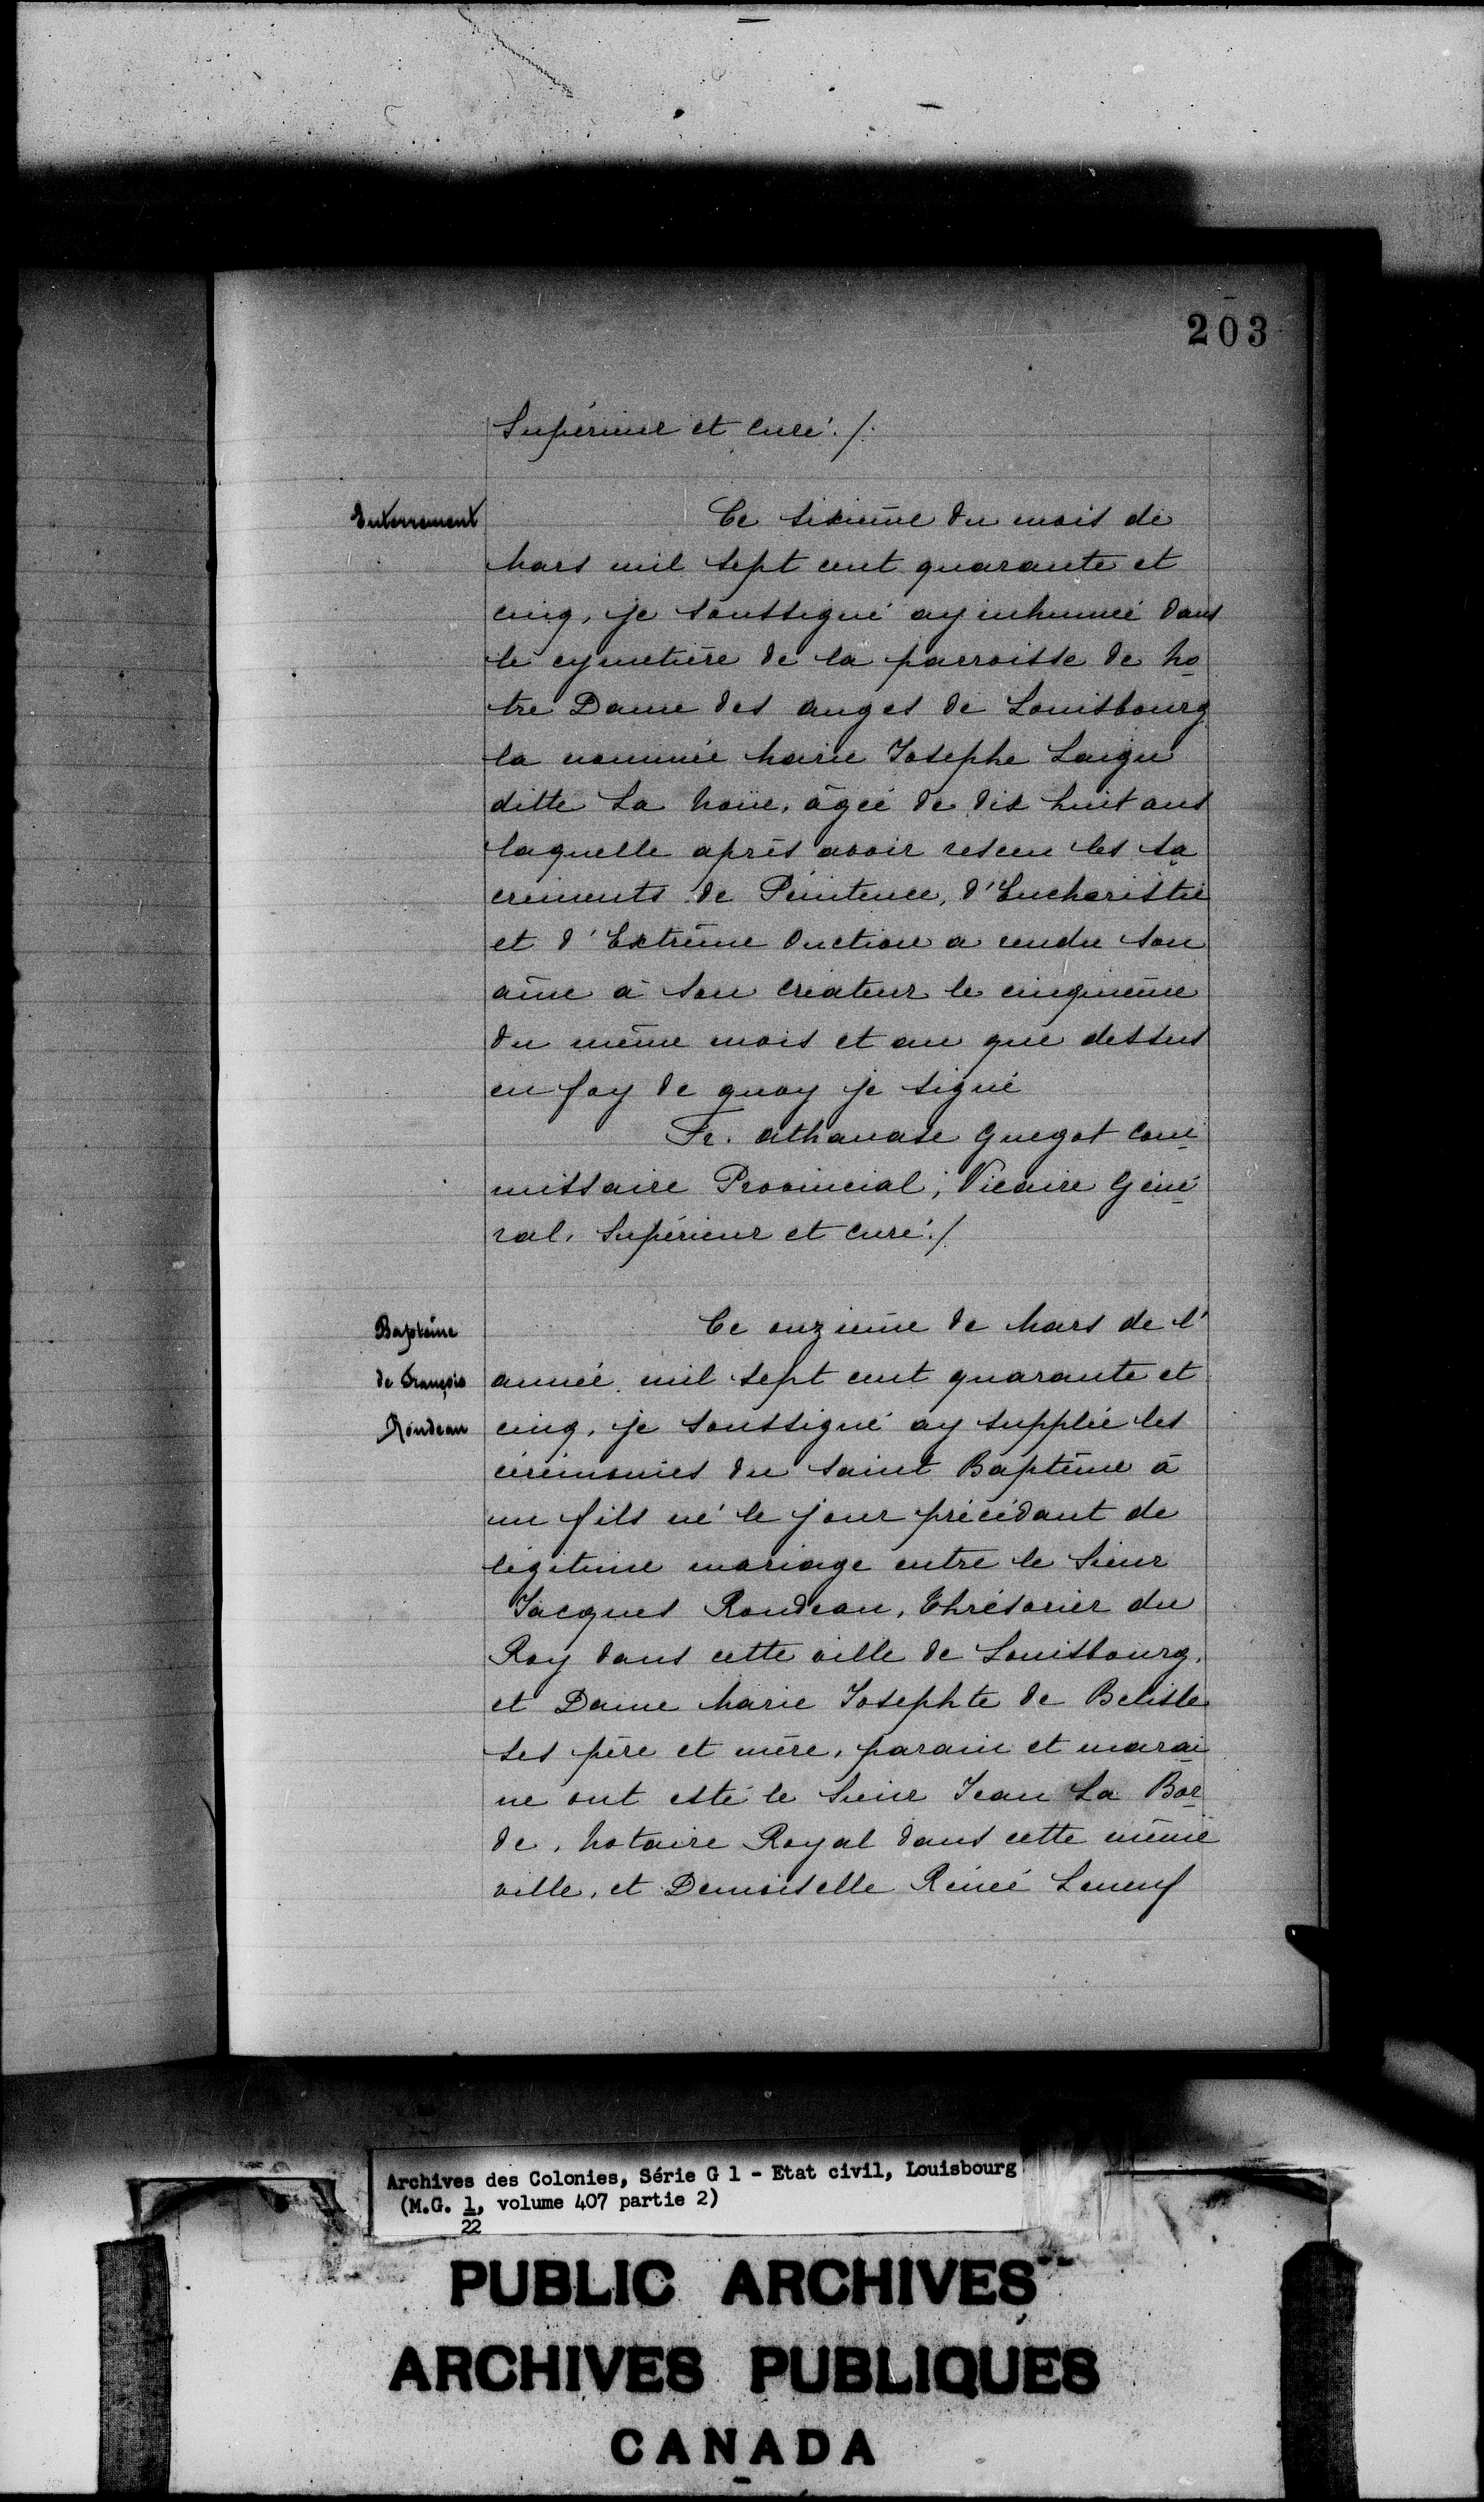 203
Supérieur et curé./.
Enterrement
Ce sixième du mois de
Mars mil sept cent quarante et
cinq, je soussigné ay inhumée dans
le cymetière de la parroisse de No
tre Dame des anges de Louisbourg
la nommée Marie Josephe Laigu
ditte La Noue, âgée de dix huit ans
laquelle après avoir resceu les sa
crements de Pénitence, d'Eucharistie
et d'Extrême Onction a rendu son
âme à son créateur le cinquième
du même mois et an que dessus
en foy de quoy je signé
Fr. athanase Guegot Com
missaire Provincial, Vicaire Géné
ral, Supérieur et curé./.
Baptême
de François
Rondeau
Ce onzième de Mars de l'
année mil sept cent quarante et
cinq, je soussigné ay supplée les
cérémonies du saint Baptême à
un fils né le jour précédant de
légitime mariage entre le Sieur
Jacques Rondeau, Thrésorier du
Roy dans cette ville de Louisbourg,
et Dame Marie Josephte de Belisle
ses père et mère, parain et marai
ne ont esté le Sieur Jean La Bor
de, Notaire Royal dans cette même
ville, et Demoiselle Rénée Leneuf
Archives des Colonies, Série G 1 - Etat civil, Louisbourg
(M.G. 1, volume 407 partie 2)
22
PUBLIC ARCHIVES
ARCHIVES PUBLIQUES
CANADA